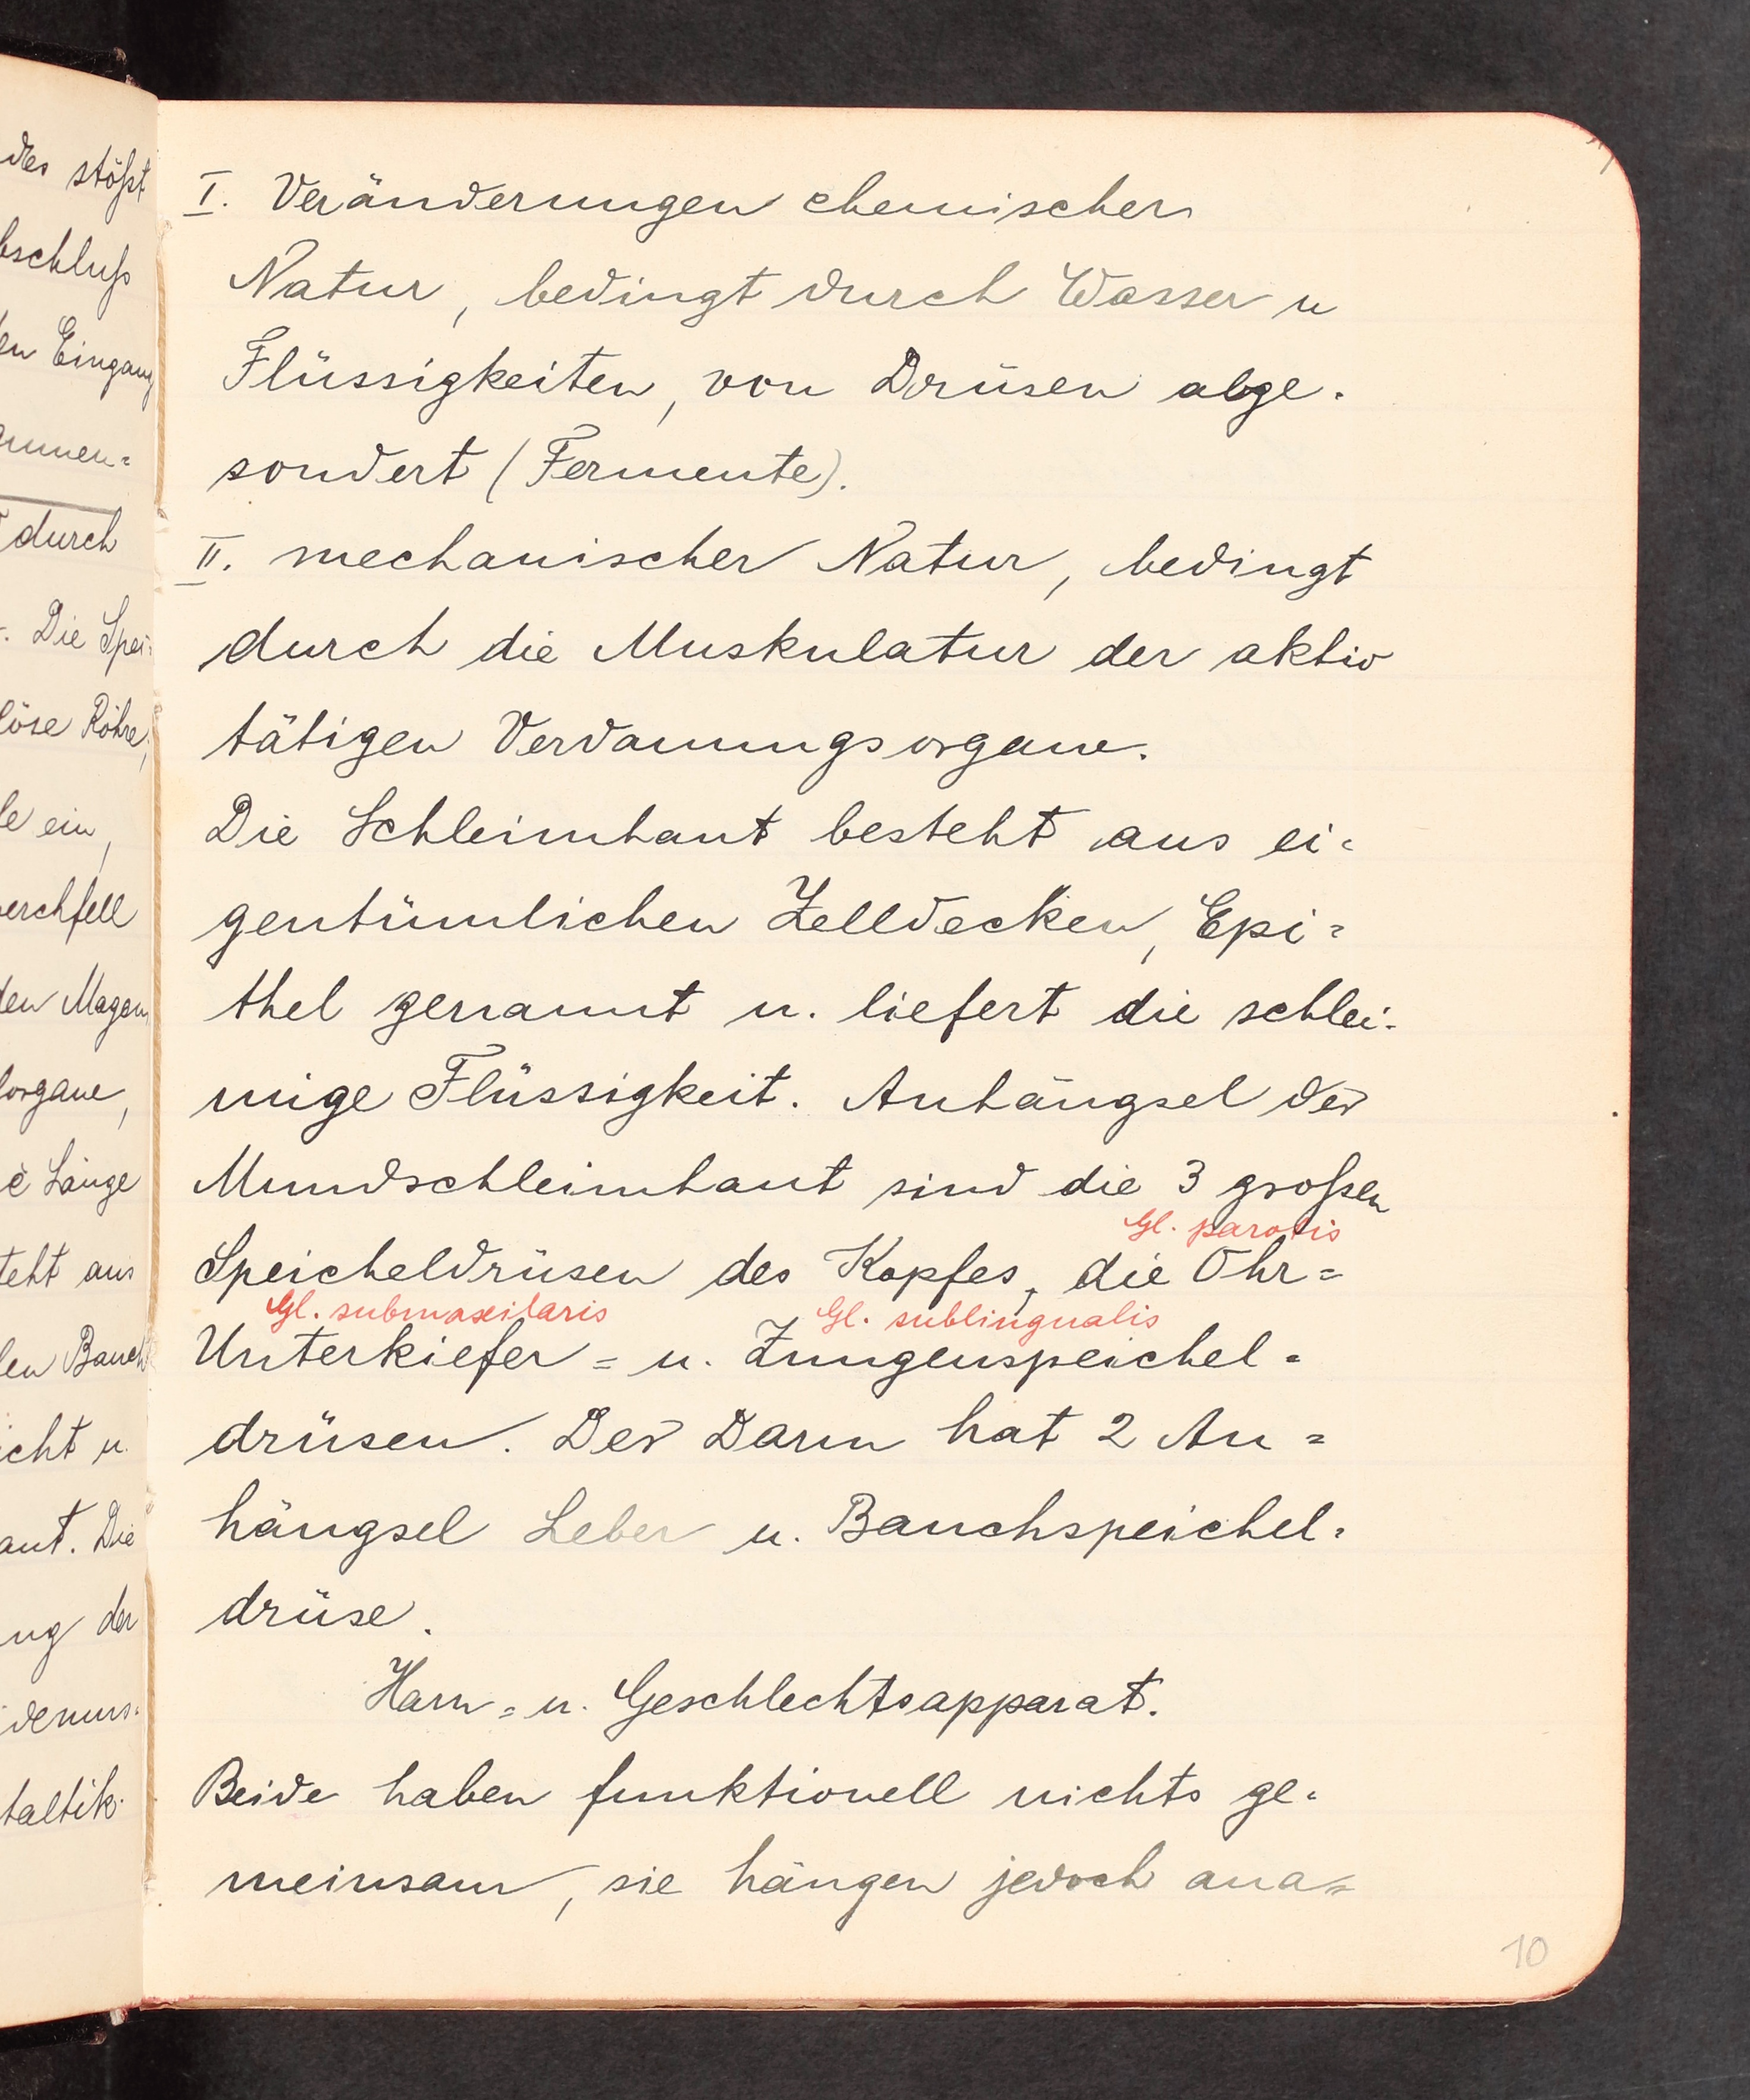 des stößt
bschluß
en Eingang
durch
. Die Spei=
löse Röhre,
le ein,
erchfell
den Magen
lorgane,
è Länge
teht aus
len Bauch
icht u.
aut. Die
ng der
taltik.
I. Veränderungen chemischer
Natur, bedingt durch Wasser u
Flüssigkeiten, von Drüsen abge-
sondert (Fermente).
II. mechanischer Natur, bedingt
durch die Muskulatur der aktiv
tätigen Verdauungsorgane.
Die Schleimhaut besteht aus ei-
gentümlichen Zelldecken, Epi=
thel genannt u. liefert die schlei-
mige Flüssigkeit. Anhängsel der
Mundschleimhaut sind die 3 großen
Gl. parotis
Speicheldrüsen des Kopfes, die Ohr=
Gl. submaxilaris Gl. sublingualis
Unterkiefer= u. Zungenspeichel=
drüsen. Der Darm hat 2 An=
hängsel Leber u. Bauchspeichel=
drüse.
Harn= u. Geschlechtsapparat.
Beide haben funktionell nichts ge-
meinsam, sie hängen jedoch ana=
10